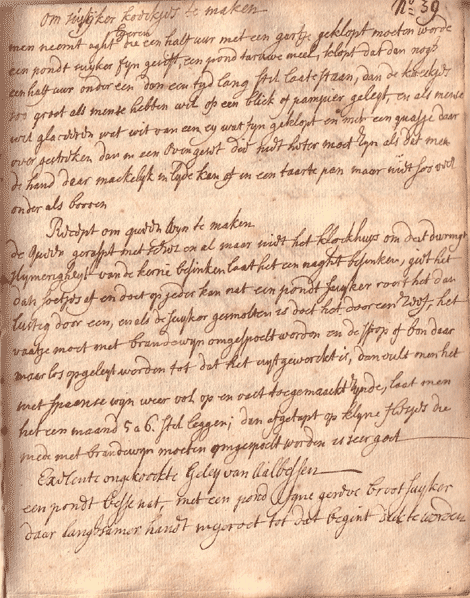 N:o 39
om suijker koeckjes te maken
men neemt agt Eijeren die een half uur met een gortje geklopt moeten worde
een pondt suijker fijn gesift, een pond taruwe meel, klopt dat dan nogh
een half uur onder een dan een tijd lang stil laate staan, dan de koeckjes
soo groot als mense hebben wil op een blick of pampier geleijt, en als mense
wil glaceeren wat wit van een eij wat fijn geklopt en met een quasje daar
over gestreken dan in een oven geset die niet heter moet zijn als dat men
de hand daar mackelijk in lijde kan of in een taarte pan maar niet soo veel
onder als boven
Recept om queen wijn te maken
de queen geraspt met schil en al maar niet het klockhuijs om dat
slijmerigheijt van de kernen laat het een naght besincken, giet het
dan soetjes af en doet op jeder kan nat een pondt suijker roert het dan
lustig door een, en als de suijker gesmolten is doet het door een in het
vaatje moet met brandewijn omgespoelt worden en de spon of bon daar
maar los opgeleijt worden tot dat het uijtgewerckt is, dan vult men het
met spaanse wijn weer vol op en vast toegemaackt zijnde, laat men
het een maand 5 a 6 stil leggen; dan afgetapt op klijne flesjes die
mede met brandewijn moeten omgespoelt worden is seer goet
Exelente ongekoockte Geleij van Aalbessen
een pondt besse nat, met een pond fijne broot suijker
daar langsamer handt ingeroert tot dat begint dick te worden